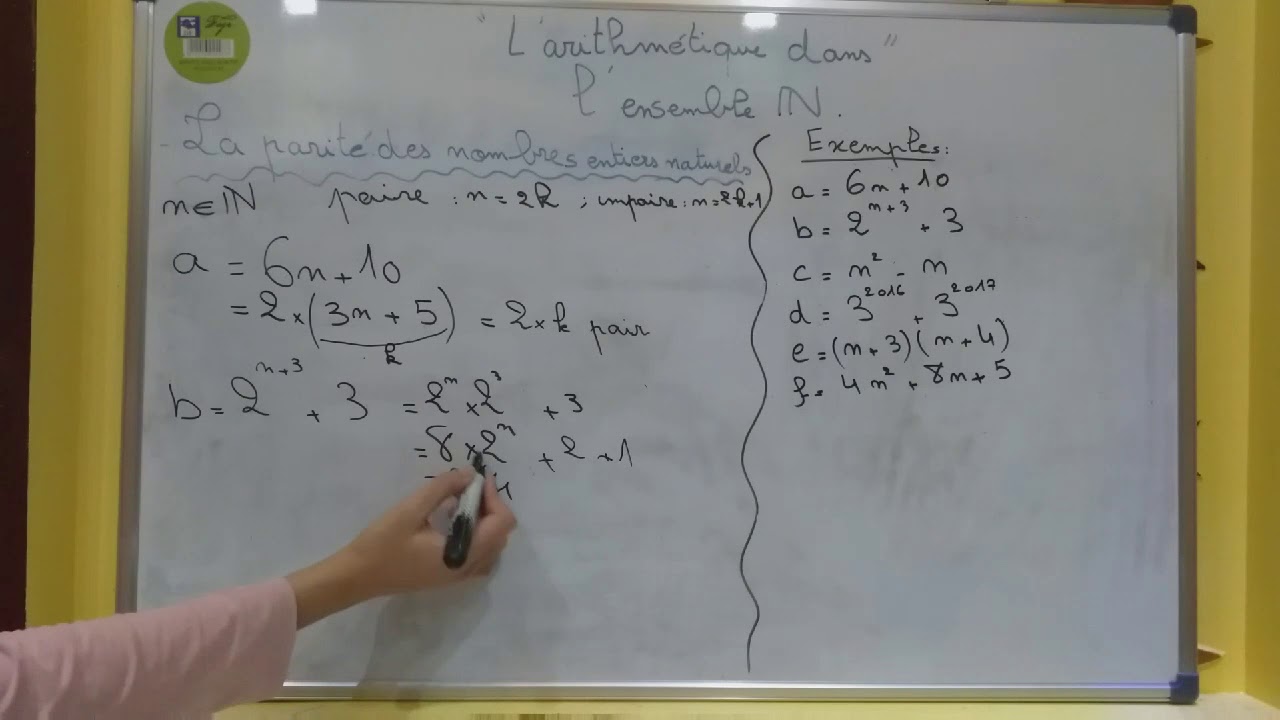 "L'arithmétique dans"
l'ensemble IN.
- La parité des nombres entiers naturels
n∈IN paire : n = 2k ; impaire : n=2k+1
a = 6n + 10
= 2 × (3n + 5) = 2 × k pair
k
b = 2^{n+3} + 3 = 2^n × 2^3 + 3
= 8 × 2^n + 2 + 1
Exemples:
a = 6n + 10
b = 2^{n+3} + 3
c = n^2 - n
d = 3^{2016} + 3^{2017}
e = (n + 3)(n + 4)
f = 4n^2 + 8n + 5